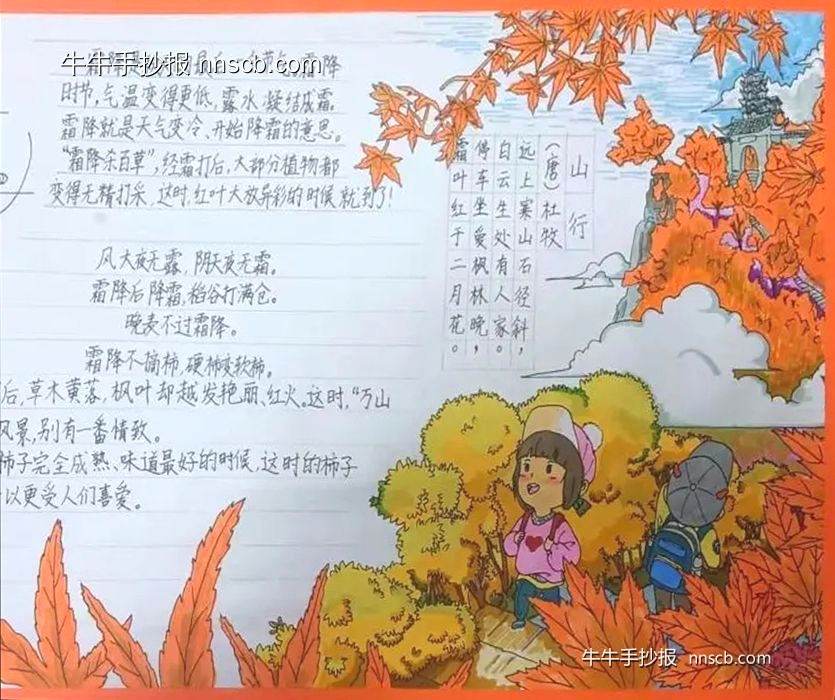 牛牛手抄报 nnscb.com
霜降
时节,气温变得更低,露水凝结成霜。
霜降就是天气变冷、开始降霜的意思。
“霜降杀百草”,经霜打后,大部分植物都
变得无精打采,这时,红叶大放异彩的时候就到了!
风大夜无露,阴天夜无霜。
霜降后降霜,稻谷打满仓。
晚麦不过霜降。
霜降不摘柿,硬柿变软柿。
后,草木黄落,枫叶却越发艳丽、红火。这时,“万山
风景,别有一番情致。
柿子完全成熟、味道最好的时候,这时的柿子
以更受人们喜爱。
山行
(唐)杜牧
远上寒山石径斜,
白云生处有人家。
停车坐爱枫林晚,
霜叶红于二月花。
牛牛手抄报 nnscb.com